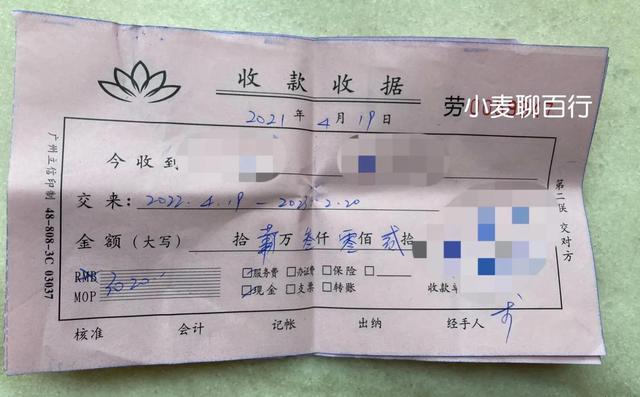 收款收据
2021年4月19日
劳小麦聊百行
今收到
交来:2022.4.19-2021.2.20
金额(大写) 拾 万叁仟零佰贰拾
RMB 3020
MOP
☑服务费 □办证费 □保险 □
☑现金 □支票 □转账
收款单
核准 会计 记帐 出纳 经手人
广州立信印制 48-808-3C 03037
第二联 交对方